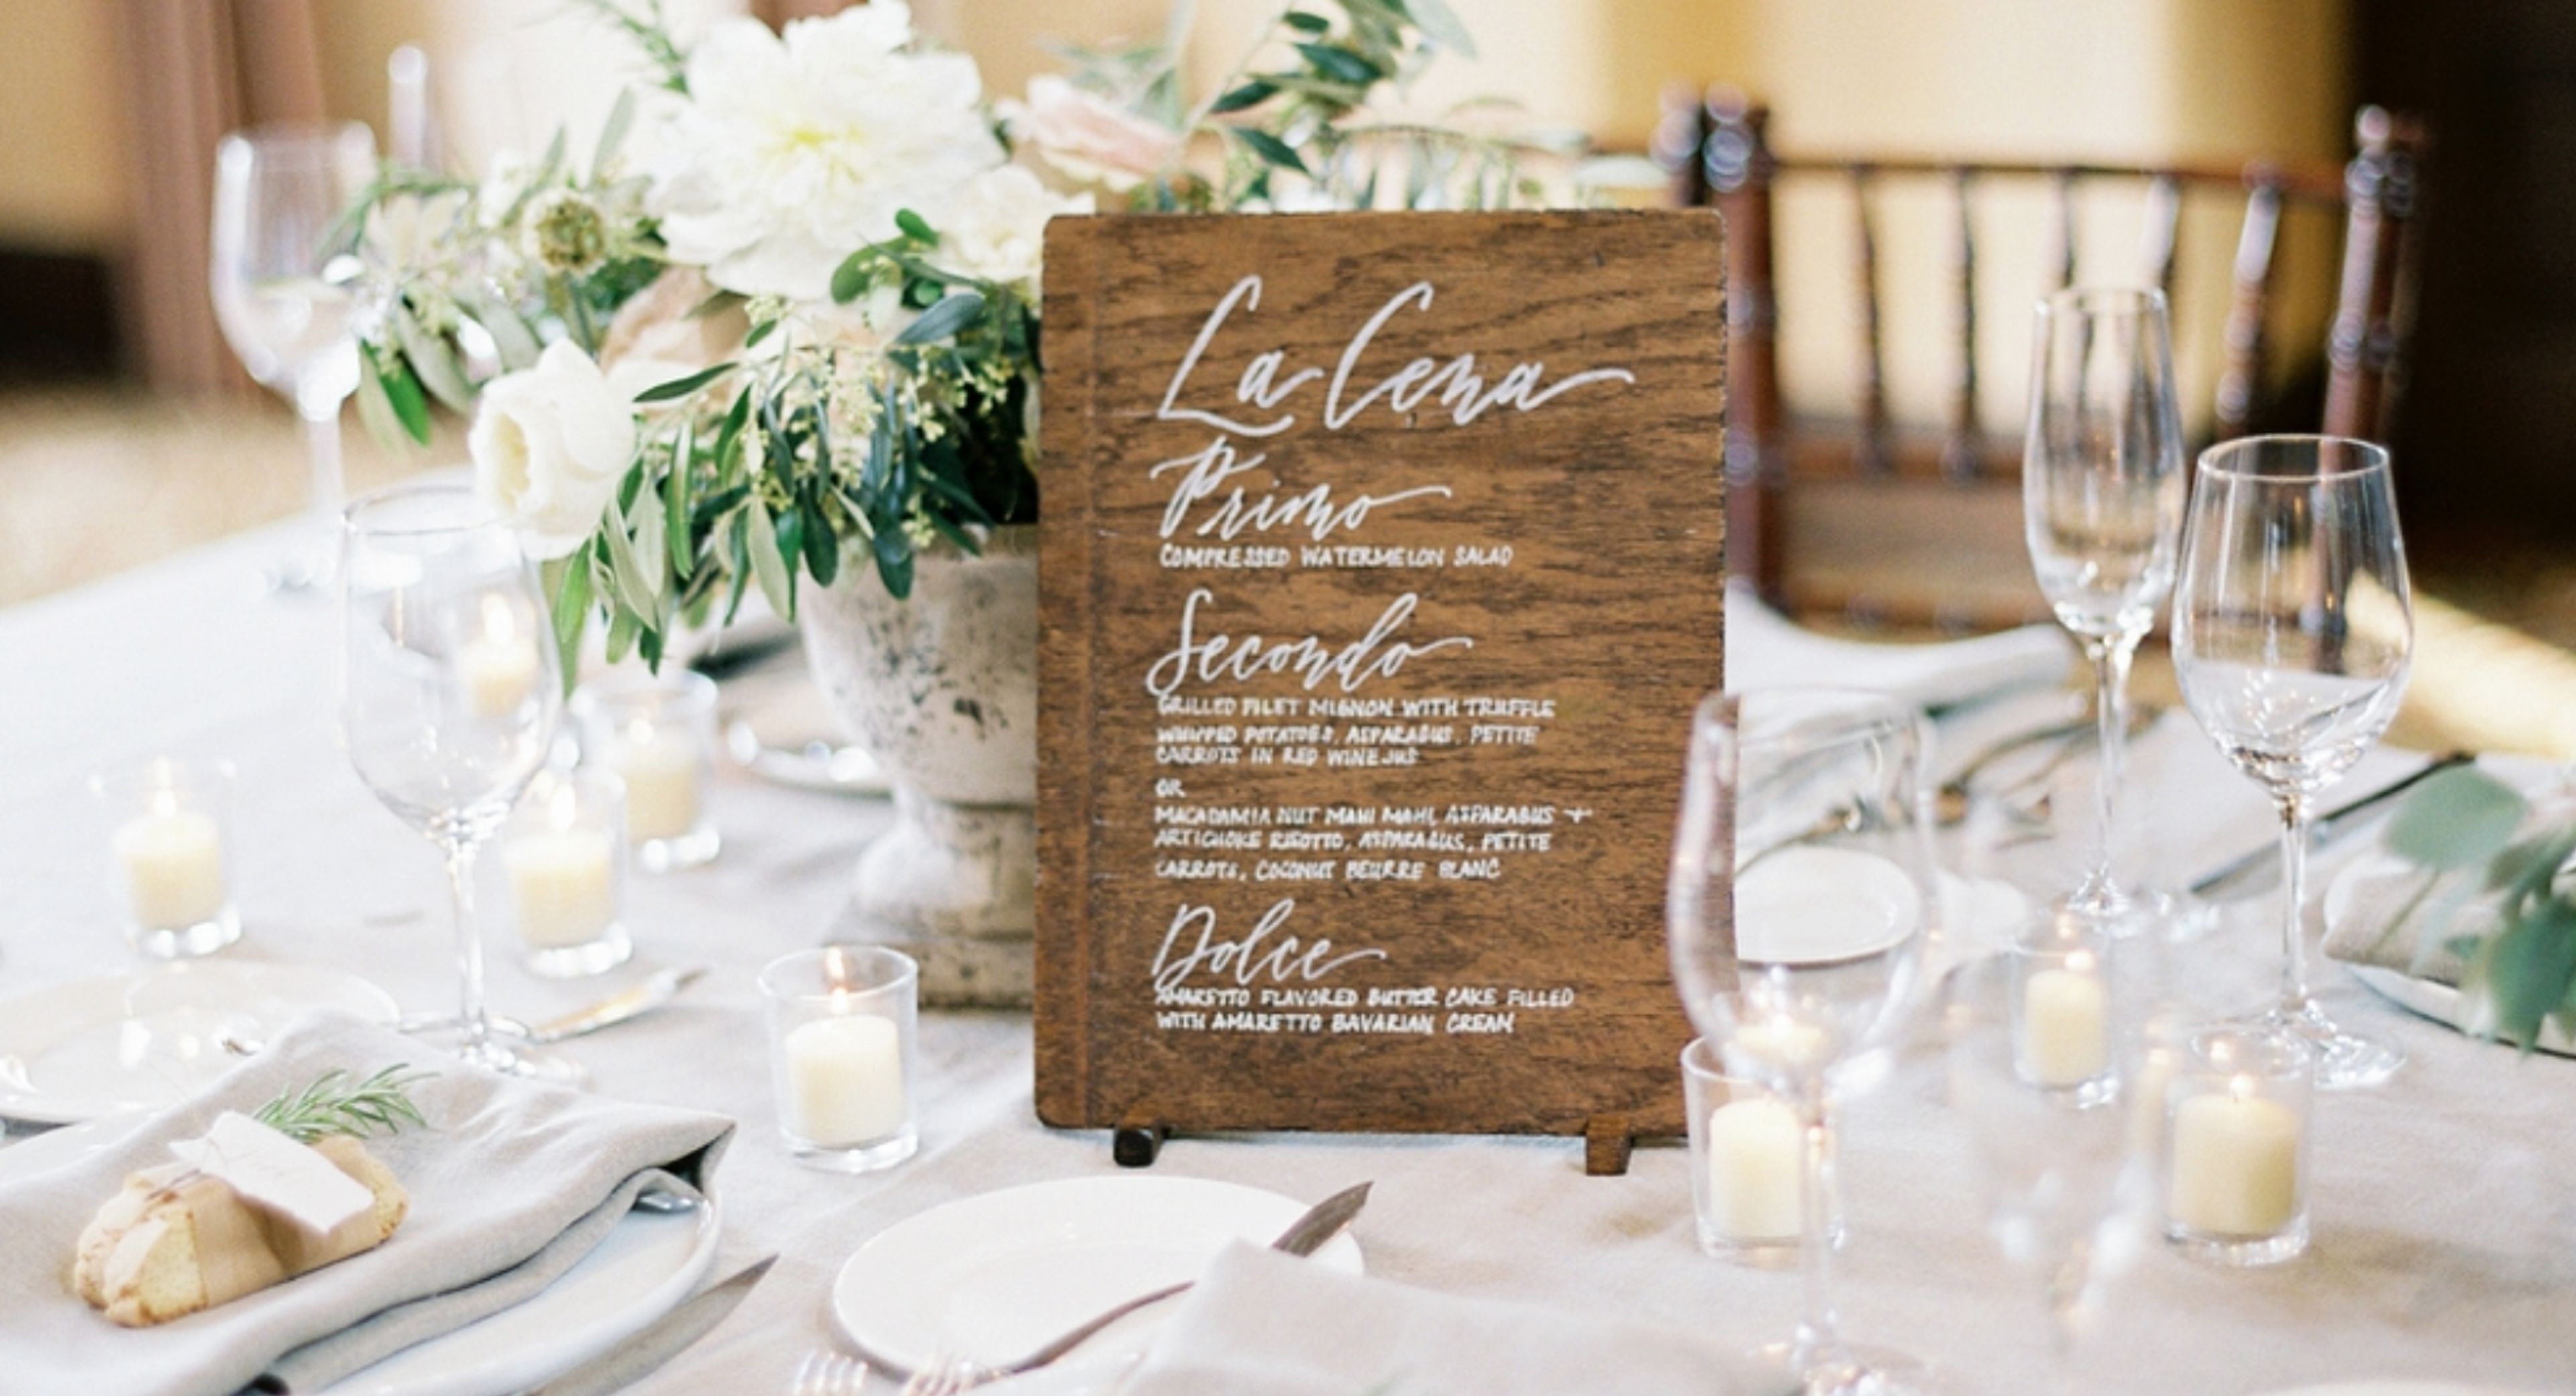 La Cena
Primo
COMPRESSED WATERMELON SALAD
Secondo
GRILLED FILET MIGNON WITH TRUFFLE
WHIPPED POTATOES, ASPARAGUS, PETITE
CARROTS IN RED WINE JUS
OR
MACADAMIA NUT MAHI MAHI, ASPARAGUS +
ARTICHOKE RISOTTO, ASPARAGUS, PETITE
CARROTS, COCONUT BEURRE BLANC
Dolce
AMARETTO FLAVORED BUTTER CAKE FILLED
WITH AMARETTO BAVARIAN CREAM